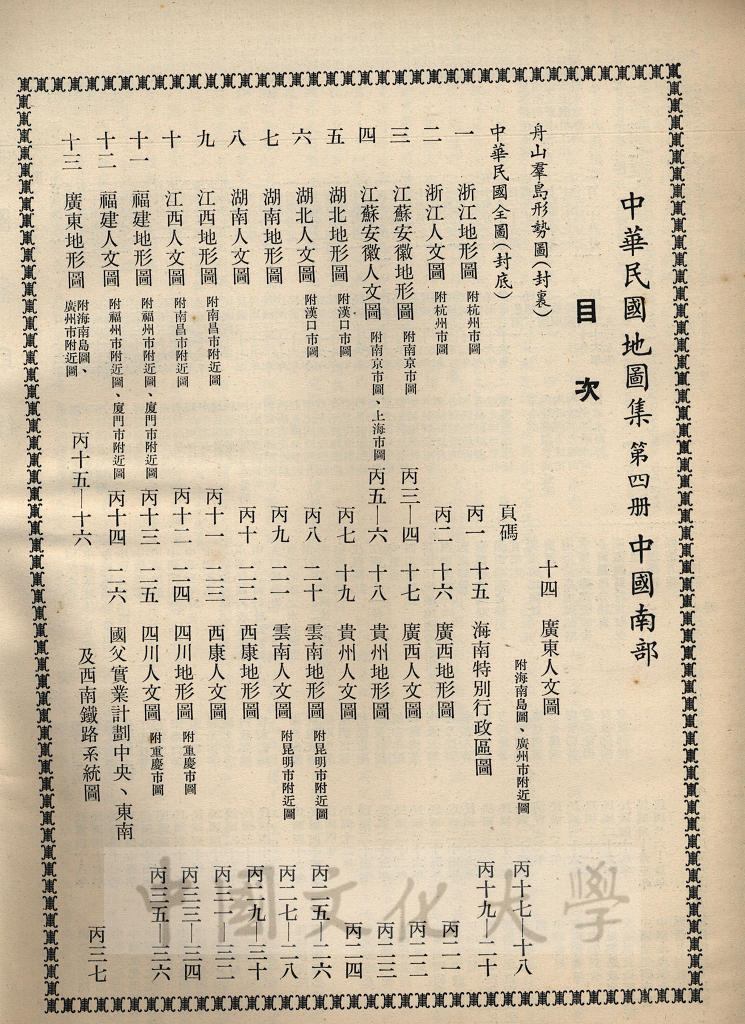 中華民國地圖集 第四册 中國南部
目次
舟山羣島形勢圖(封裏)
中華民國全圖(封底)
頁碼
一 浙江地形圖 附杭州市圖 丙一
二 浙江人文圖 附杭州市圖 丙二
三 江蘇安徽地形圖 附南京市圖 丙三—四
四 江蘇安徽人文圖 附南京市圖、上海市圖 丙五—六
五 湖北地形圖 附漢口市圖 丙七
六 湖北人文圖 附漢口市圖 丙八
七 湖南地形圖 丙九
八 湖南人文圖 丙十
九 江西地形圖 附南昌市附近圖 丙十一
十 江西人文圖 附南昌市附近圖 丙十二
十一 福建地形圖 附福州市附近圖、廈門市附近圖 丙十三
十二 福建人文圖 附福州市附近圖、廈門市附近圖 丙十四
十三 廣東地形圖 附海南島圖、廣州市附近圖 丙十五—十六
十四 廣東人文圖 附海南島圖、廣州市附近圖 丙十七—十八
十五 海南特別行政區圖 丙十九—二十
十六 廣西地形圖 丙二一
十七 廣西人文圖 丙二二
十八 貴州地形圖 丙二三
十九 貴州人文圖 丙二四
二十 雲南地形圖 附昆明市附近圖 丙二五—二六
二一 雲南人文圖 附昆明市附近圖 丙二七—二八
二二 西康地形圖 丙二九—三十
二三 西康人文圖 丙三一—三二
二四 四川地形圖 附重慶市圖 丙三三—三四
二五 四川人文圖 附重慶市圖 丙三五—三六
二六 國父實業計劃中央、東南
及西南鐵路系統圖 丙三七
中國文化大學